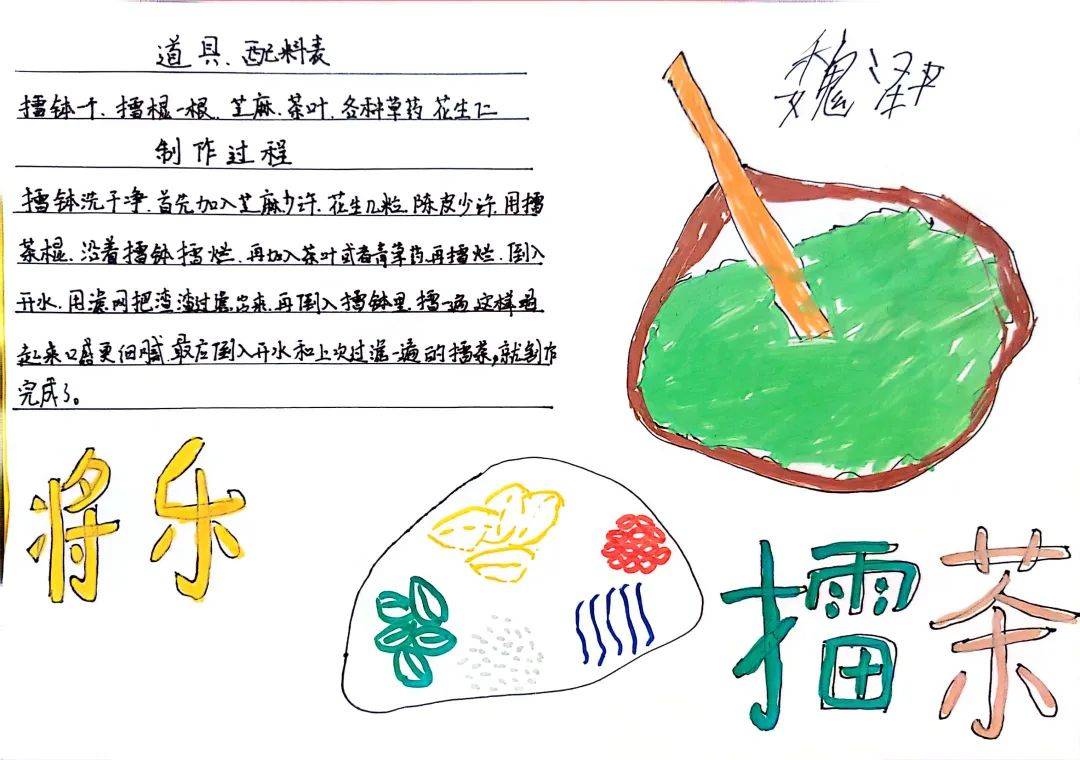 道具、配料表
擂钵一个、擂棍一根、芝麻、茶叶、各种草药花生仁
制作过程
擂钵洗干净、首先加入芝麻少许、花生几粒、陈皮少许、用擂
茶棍、沿着擂钵擂烂、再加入茶叶或者青草药、再擂烂、倒入
开水、用滤网把渣渣过滤出来、再倒入擂钵里、擂一遍、这样喝
起来口感更细腻、最后倒入开水和上次过滤一遍的擂茶,就制作
完成了。
魏泽
将乐
擂茶